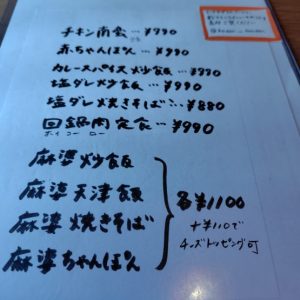 チキン南蛮…¥990
赤ちゃんぽん…¥990
カレースパイス炒飯…¥990
塩ダレ炒飯…¥990
塩ダレ焼きそば…¥880
回鍋肉定食…¥990
ホイコーロー
麻婆炒飯
麻婆天津飯
麻婆焼きそば
麻婆ちゃんぽん
各¥1100
+¥110で
チーズトッピング可